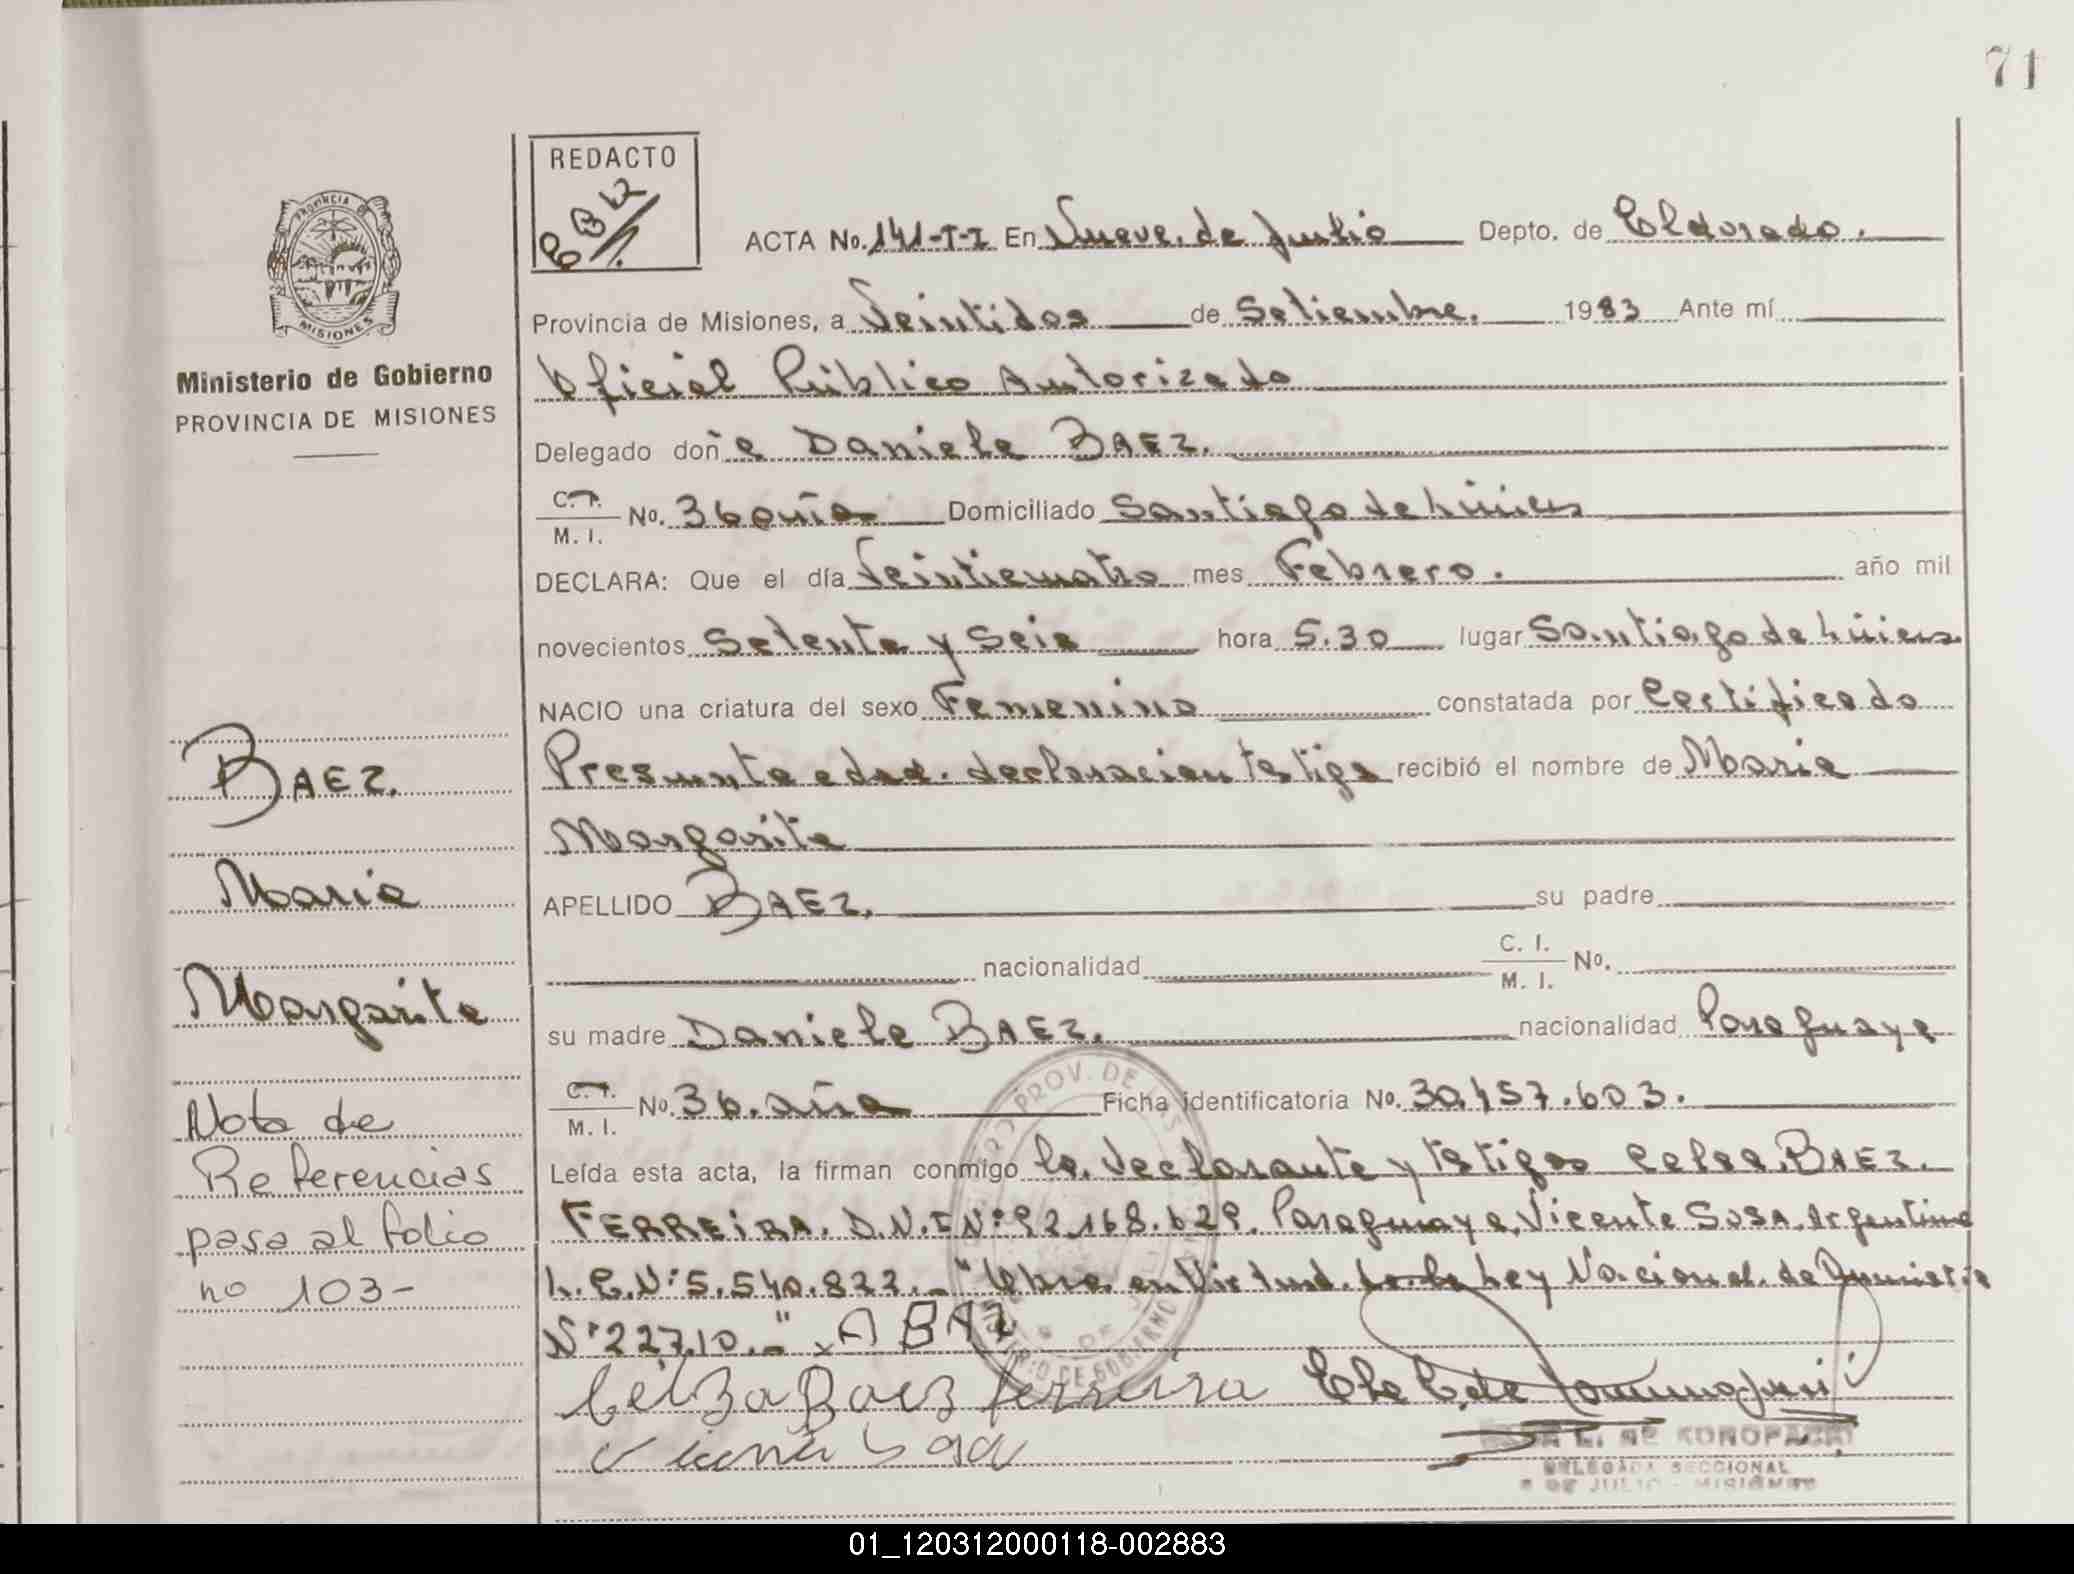 71
REDACTO
ACTA No. 141-T-I En Nueve de Julio Depto. de Eldorado.
Provincia de Misiones, a Veintidos de Setiembre. 1983 Ante mí
Oficial Público Autorizado
Delegado doña Daniela BAEZ.
C.I. M. I. No. 36 años Domiciliado Santiago de Liniers
DECLARA: Que el día Veinticuatro mes Febrero. año mil
novecientos Setenta y Seis hora 5.30 lugar Santiago de Liniers
NACIO una criatura del sexo Femenino constatada por Certificado
Presunta edad. declaracion testigo recibió el nombre de Maria
Margarita
APELLIDO BAEZ. su padre
nacionalidad C. I. M. I. No.
su madre Daniela BAEZ. nacionalidad Paraguaya
C.I. M. I. No. 36. años Ficha identificatoria No. 30.457.603.
Leída esta acta, la firman conmigo la. declarante y testigos Celsa. BAEZ.
FERREIRA. D.N.I Nº 92.168.629. Paraguaya, Vicente SOSA. Argentino
L.E.Nº 5.540.822.-"Obra en Virtud de la Ley Nacional de Amnistia
Nº 22710.-" x A BAZ
Celza Baez ferreira
Sosa
DELEGADA SECCIONAL
9 DE JULIO - MISIONES
PROVINCIA DE
MISIONES
Ministerio de Gobierno
PROVINCIA DE MISIONES
BAEZ.
Maria
Margarita
Nota de
Referencias
pasa al folio
no 103-
PROV. DE MIS
DE GOBIERNO
01_120312000118-002883